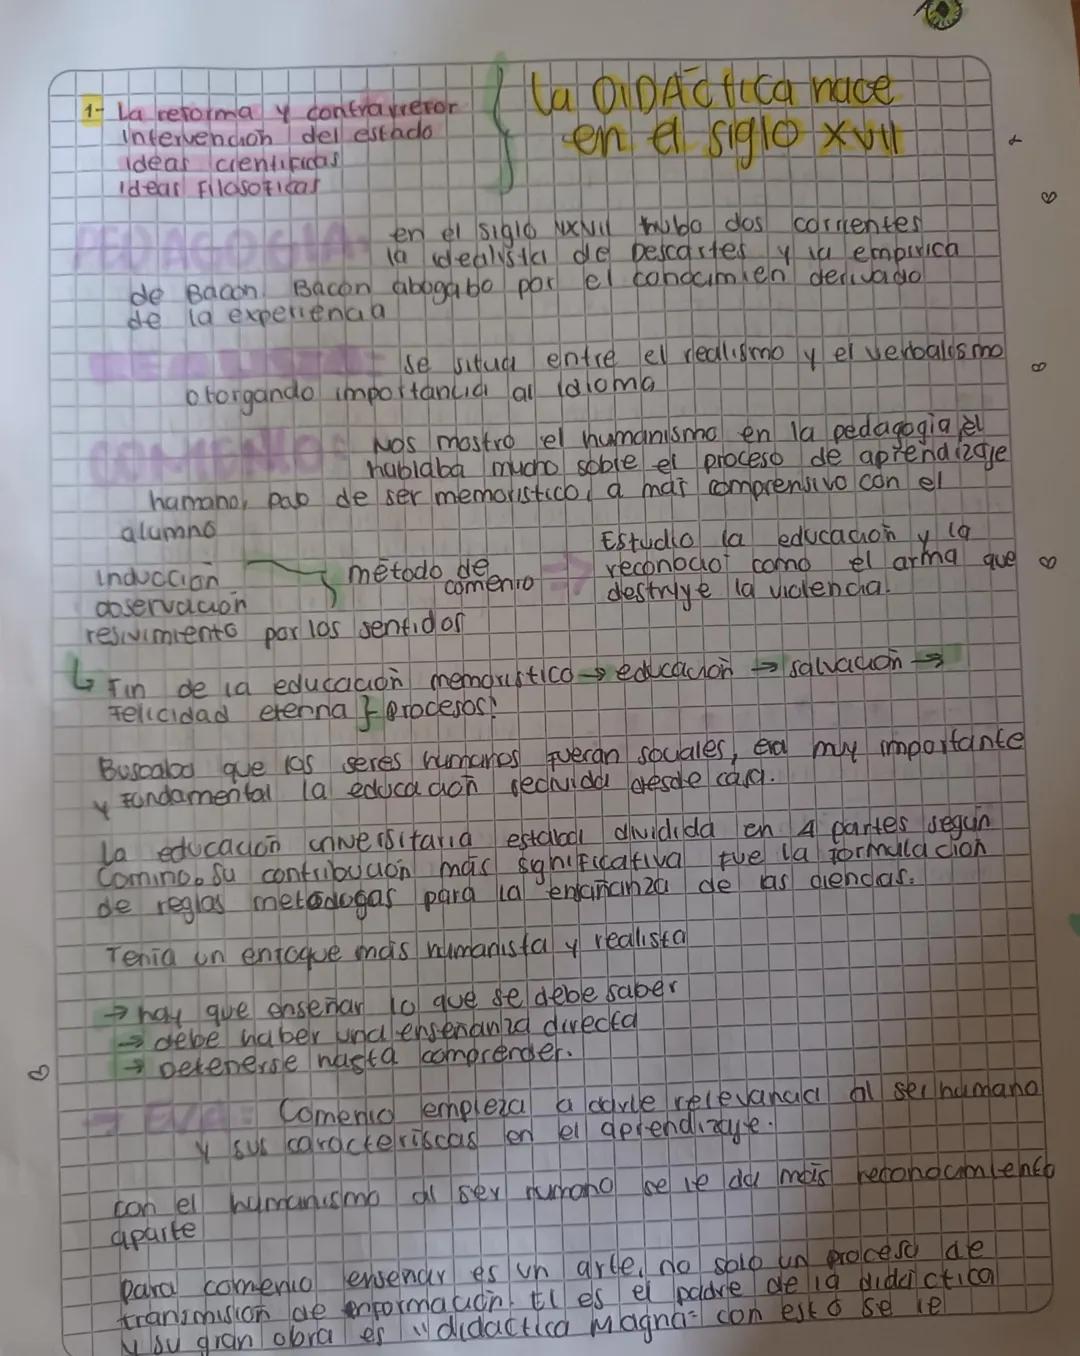 1- La reforma y contrarrefor
Intervención del estado
ideas cientificas
ideas Filosoficas
La DIDÁCtica nace
en el siglo XVII
PEDAGOGIA en el siglo XVII hubo dos corrientes
la idealista de Descartes y la empirica
de Bacon. Bacon abogabo por el conocimien derivado
de la experiencia
REALISTA se situa entre el realismo y el verbalismo
otorgando importancia al idioma
COMENIO Nos mostro el humanismo en la pedagogia él
hablaba mucho sobre el proceso de aprendizaje
humano, paso de ser memoristico, a mas comprensivo con el
alumno
inducción
observación
resivimiento por los sentidos
método de
comenio
Estudio la educacion y la
reconocio como el arma que
destruye la violencia.
Fin de la educación memoristico → educación → salvación →
Felicidad eterna } procesos!
Buscaba que los seres humanos fueran sociales, era muy importante
y Fundamental la educación recivida desde casa.
La educación universitaria estaba dividida en 4 partes según
Comino. Su contribución más significativa fue la formulacion
de reglas metodogas para la enñanza de las ciencias.
Tenia un enfoque más humanista y realista
→ hay que enseñar lo que se debe saber
→ debe haber una enseñanza directa
→ Detenerse hasta comprender.
→ Comenio empieza a darle relevancia al ser humano
y sus caracteriscas en el aprendizaje.
con el humanismo al ser humano se le da más reconocimiento
aparte
para comenio ensenar es un arte, no solo un proceso de
transmision de informacion. El es el padre de la didáctica
y su gran obra es "didactica Magna" con esto se le